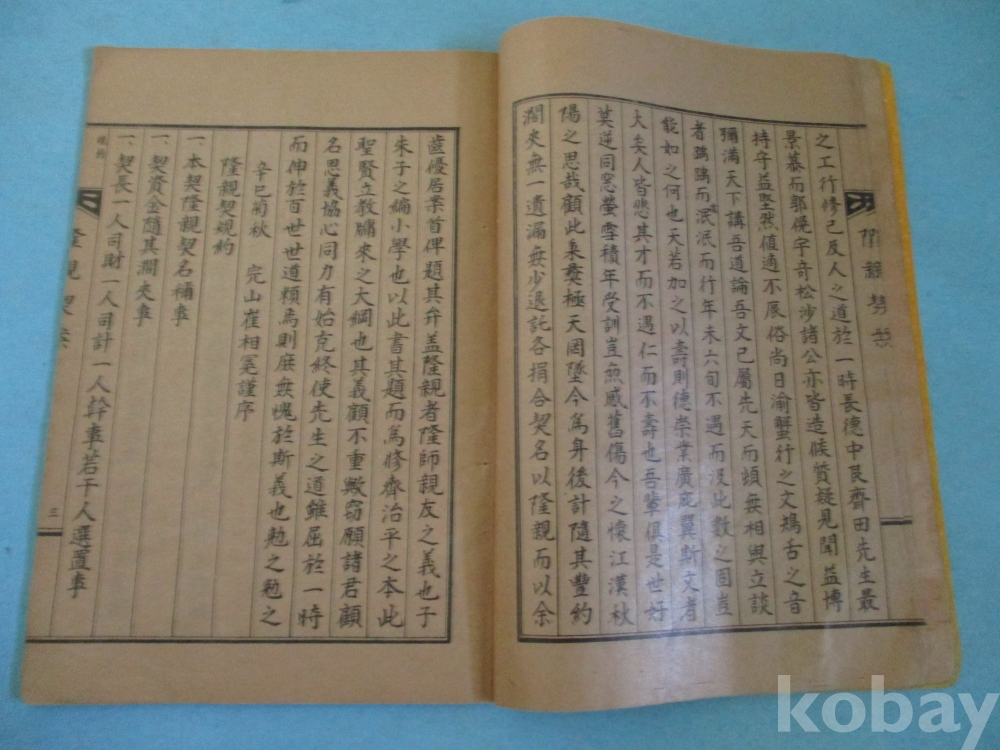 隆親契案
之工行修己及人之道於一時長德中艮齋田先生最
景慕而郭俛宇奇松沙諸公亦皆造候質疑見聞益博
持守益堅然値適不辰俗尚日渝蟹行之文鴂舌之音
彌滿天下講吾道論吾文已屬先天而頭無相與立談
者踽踽而泯泯而行年未六旬不遇而沒此數之固豈
能如之何也天若加之以壽則德崇業廣庇翼斯文者
大矣人皆悲其才而不遇仁而不壽也吾輩俱是世好
莫逆同窓螢雪積年受訓豈無感舊傷今之懷江漢秋
陽之思哉顧此秉彛極天罔墜今爲身後計隨其豐約
濶夾無一遺漏無少退託各捐合契名以隆親而以余
齒優居案首俾題其弁盖隆親者隆師親友之義也子
朱子之編小學也以此書其題而爲修齊治平之本此
聖賢立教牖來之大綱也其義顧不重歟窃願諸君顧
名思義協心同力有始克終使先生之道雖屈於一時
而伸於百世世道賴焉則庶無愧於斯義也勉之勉之
辛巳菊秋 完山崔相冕謹序
隆親契規約
一、本契隆親契名稱事
一、契資金隨其濶夾事
一、契長一人司財一人司計一人幹事若干人選置事
規約
隆親契案
三
kobay